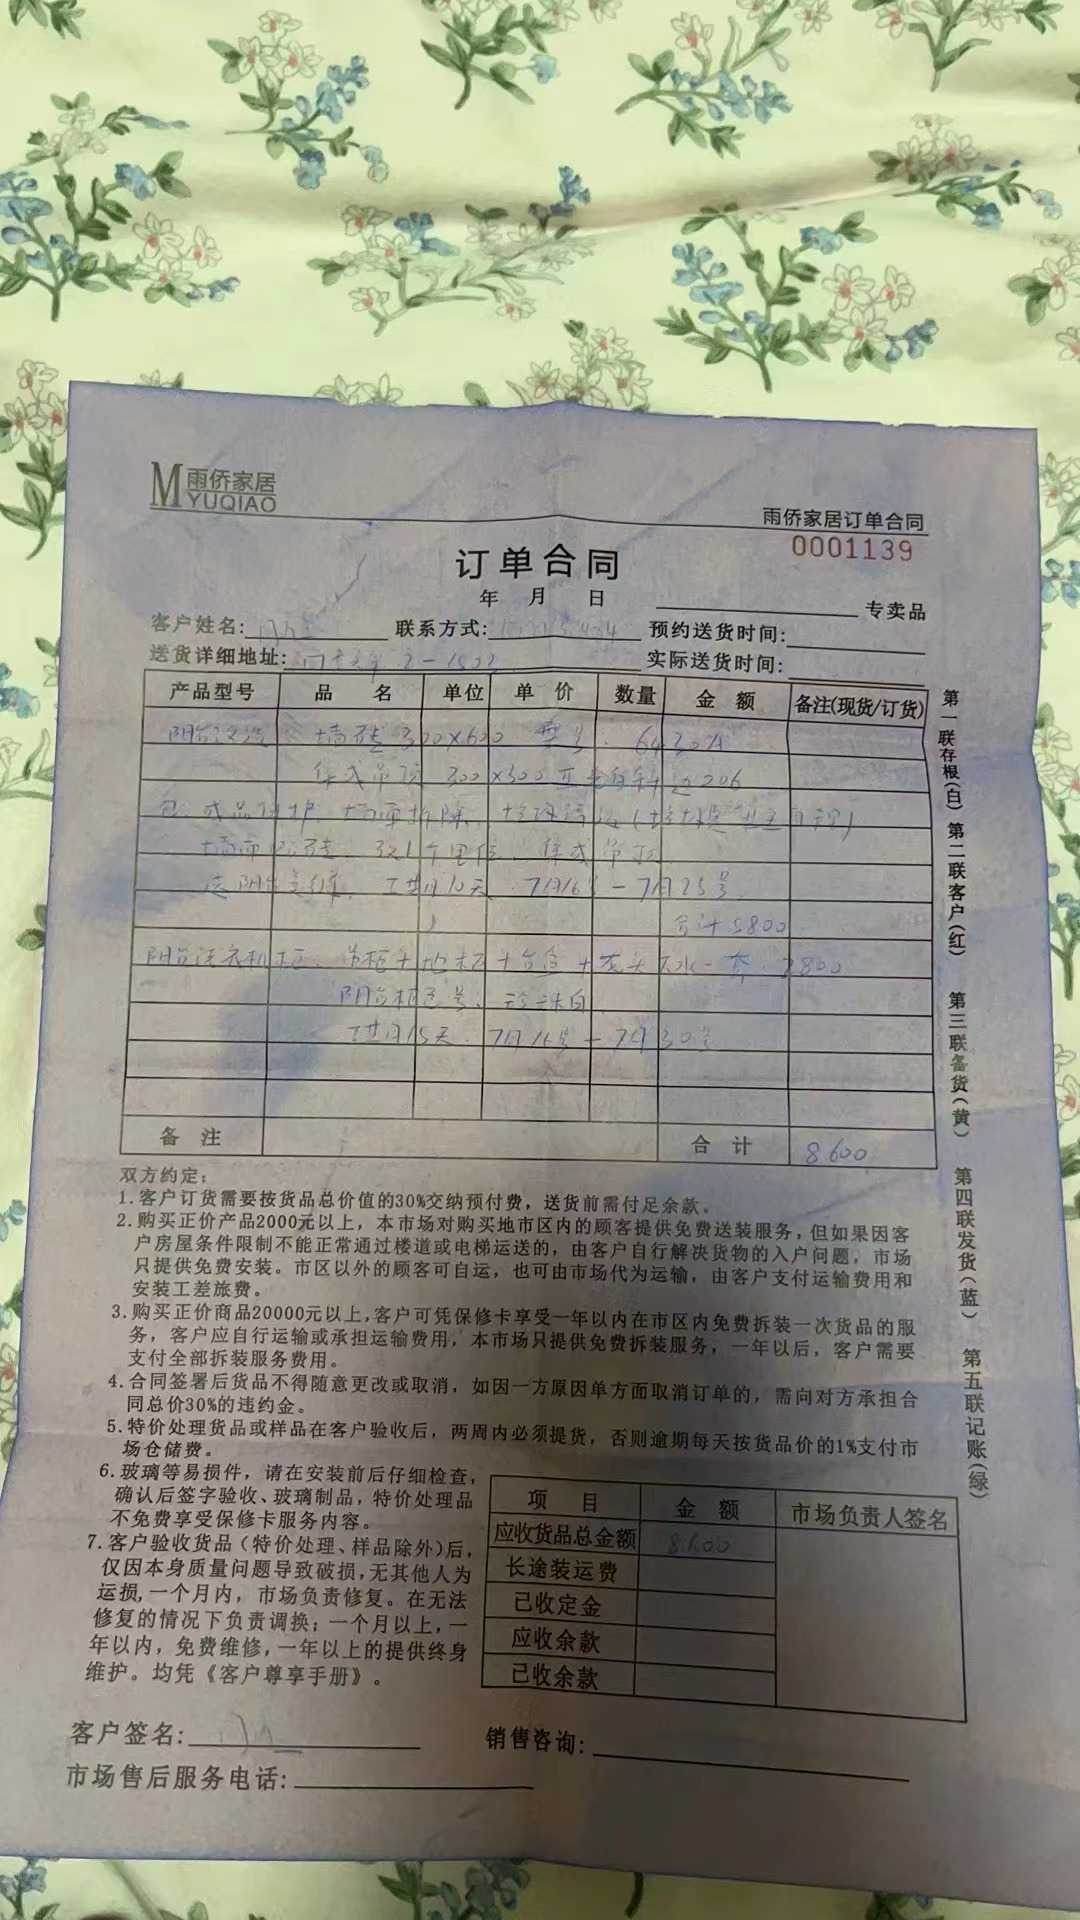 M 雨侨家居
YUQIAO
雨侨家居订单合同
0001139
订单合同
年 月 日
专卖品
客户姓名: 联系方式: 预约送货时间:
送货详细地址: 2-1502 实际送货时间:
产品型号 品 名 单位 单 价 数量 金 额 备注(现货/订货)
墙砖 300×600 型号. 64307A
集成吊顶 300×300
包: 成品保护. 墙面拆除.
墙面贴砖. 集成吊顶
工期10天. 7月16号-7月25号
合计5800
阳台洗衣机柜. 吊柜+地柜+台盆+龙头下水一套. 2800
阳台柜色号: 珍珠白
工期15天. 7月16号-7月30号
备 注 合 计 8600
双方约定:
1.客户订货需要按货品总价值的30%交纳预付费，送货前需付足余款。
2.购买正价产品2000元以上，本市场对购买地市区内的顾客提供免费送装服务，但如果因客
户房屋条件限制不能正常通过楼道或电梯运送的，由客户自行解决货物的入户问题，市场
只提供免费安装。市区以外的顾客可自运，也可由市场代为运输，由客户支付运输费用和
安装工差旅费。
3.购买正价商品20000元以上，客户可凭保修卡享受一年以内在市区内免费拆装一次货品的服
务，客户应自行运输或承担运输费用，本市场只提供免费拆装服务，一年以后，客户需要
支付全部拆装服务费用。
4.合同签署后货品不得随意更改或取消，如因一方原因单方面取消订单的，需向对方承担合
同总价30%的违约金。
5.特价处理货品或样品在客户验收后，两周内必须提货，否则逾期每天按货品价的1%支付市
场仓储费。
6.玻璃等易损件，请在安装前后仔细检查，
确认后签字验收、玻璃制品，特价处理品
不免费享受保修卡服务内容。
7.客户验收货品（特价处理、样品除外)后，
仅因本身质量问题导致破损,无其他人为
运损,一个月内，市场负责修复。在无法
修复的情况下负责调换；一个月以上，一
年以内，免费维修，一年以上的提供终身
维护。均凭《客户尊享手册》。
项 目 金 额 市场负责人签名
应收货品总金额 8600
长途装运费
已收定金
应收余款
已收余款
客户签名: 销售咨询:
市场售后服务电话:
第一联存根(白) 第二联客户(红) 第三联备货(黄) 第四联发货(蓝) 第五联记账(绿)